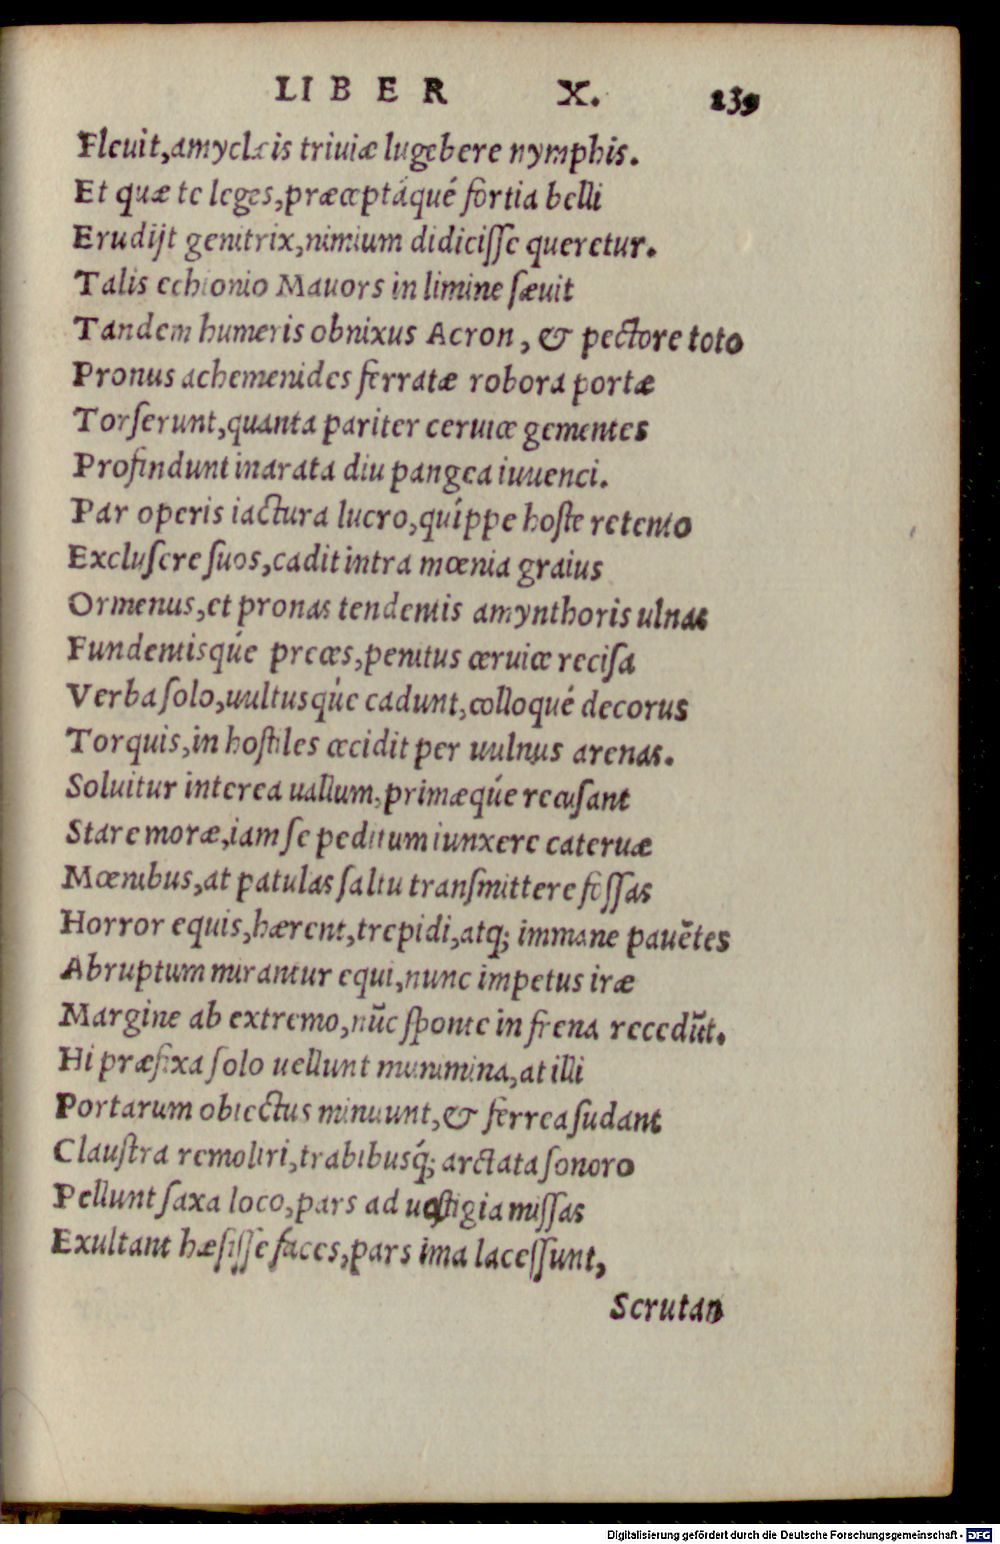 LIBER X. 239
Fleuit, amyclæis triuiæ lugebere nymphis.
Et quæ te leges, præceptáqué fortia belli
Erudijt genitrix, nimium didicisse queretur.
Talis echionio Mauors in limine sæuit
Tandem humeris obnixus Acron, & pectore toto
Pronus achemenides ferratæ robora portæ
Torserunt, quanta pariter ceruice gementes
Profindunt inarata diu pangea iuuenci.
Par operis iactura lucro, quíppe hoste retento
Exclusere suos, cadit intra mœnia graius
Ormenus, et pronas tendentis amynthoris ulnas
Fundentisqúe preces, penitus ceruice recisa
Verba solo, uultusqúe cadunt, colloqué decorus
Torquis, in hostiles cecidit per uulnus arenas.
Soluitur interea uallum, primæqúe recusant
Stare moræ, iam se peditum iunxere cateruæ
Mœnibus, at patulas saltu transmittere fossas
Horror equis, hærent, trepidi, atq; immane pauētes
Abruptum mirantur equi, nunc impetus iræ
Margine ab extremo, nūc sponte in frena recedūt.
Hi præfixa solo uellunt munimina, at illi
Portarum obiectus minuunt, & ferrea sudant
Claustra remoliri, trabibusq́; arctata sonoro
Pellunt saxa loco, pars ad uestigia missas
Exultant hæsisse faces, pars ima lacessunt,
Scrutan
Digitalisierung gefördert durch die Deutsche Forschungsgemeinschaft - DFG